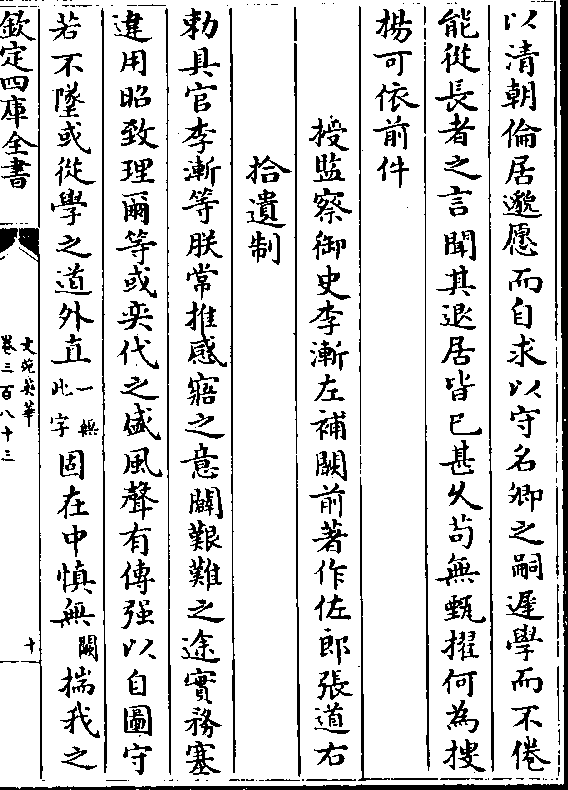 以清朝倫居邈愿而自求以守名卿之嗣遲學而不倦
能從長者之言聞其退居皆已甚久苟無甄擢何為搜
楊可依前件
授監察御史李漸左補闕前著作佐郎張道右
拾遺制
勅具官李漸等朕常推感寤之意闢艱難之途實務塞
違用昭致理爾等或奕代之盛風聲有傳强以自圖守
若不墜或從學之道外直一無此字固在中慎無闕揣我之
欽定四庫全書
文苑英華
卷三百八十三
十